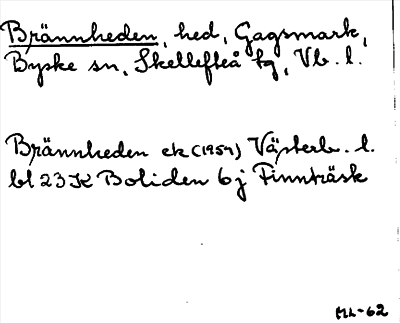 Brännheden, hed, Gagsmark,
Byske sn, Skellefteå tg, Vb. l.
Brännheden ek (1954) Västerb. l.
bl 23 K Boliden 6 j Finnträsk
ML-62